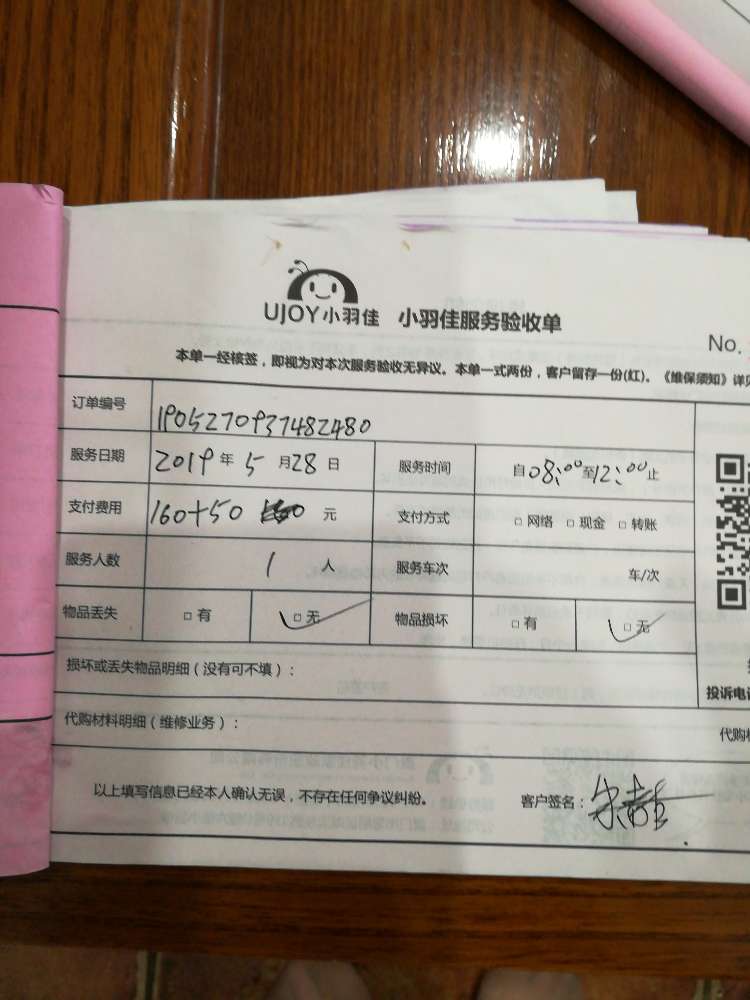 UJOY小羽佳 小羽佳服务验收单
No.
本单一经核签，即视为对本次服务验收无异议。本单一式两份，客户留存一份(红)。《维保须知》详见
订单编号 1905270937482480
服务日期 2019年5月28日 服务时间 自08:00至12:00止
支付费用 160+50 元 支付方式 □网络 □现金 □转账
服务人数 1 人 服务车次 车/次
物品丢失 □有 □无 物品损坏 □有 □无
损坏或丢失物品明细（没有可不填）：
投诉电话
代购材料明细（维修业务）： 代购材
以上填写信息已经本人确认无误，不存在任何争议纠纷。 客户签名：